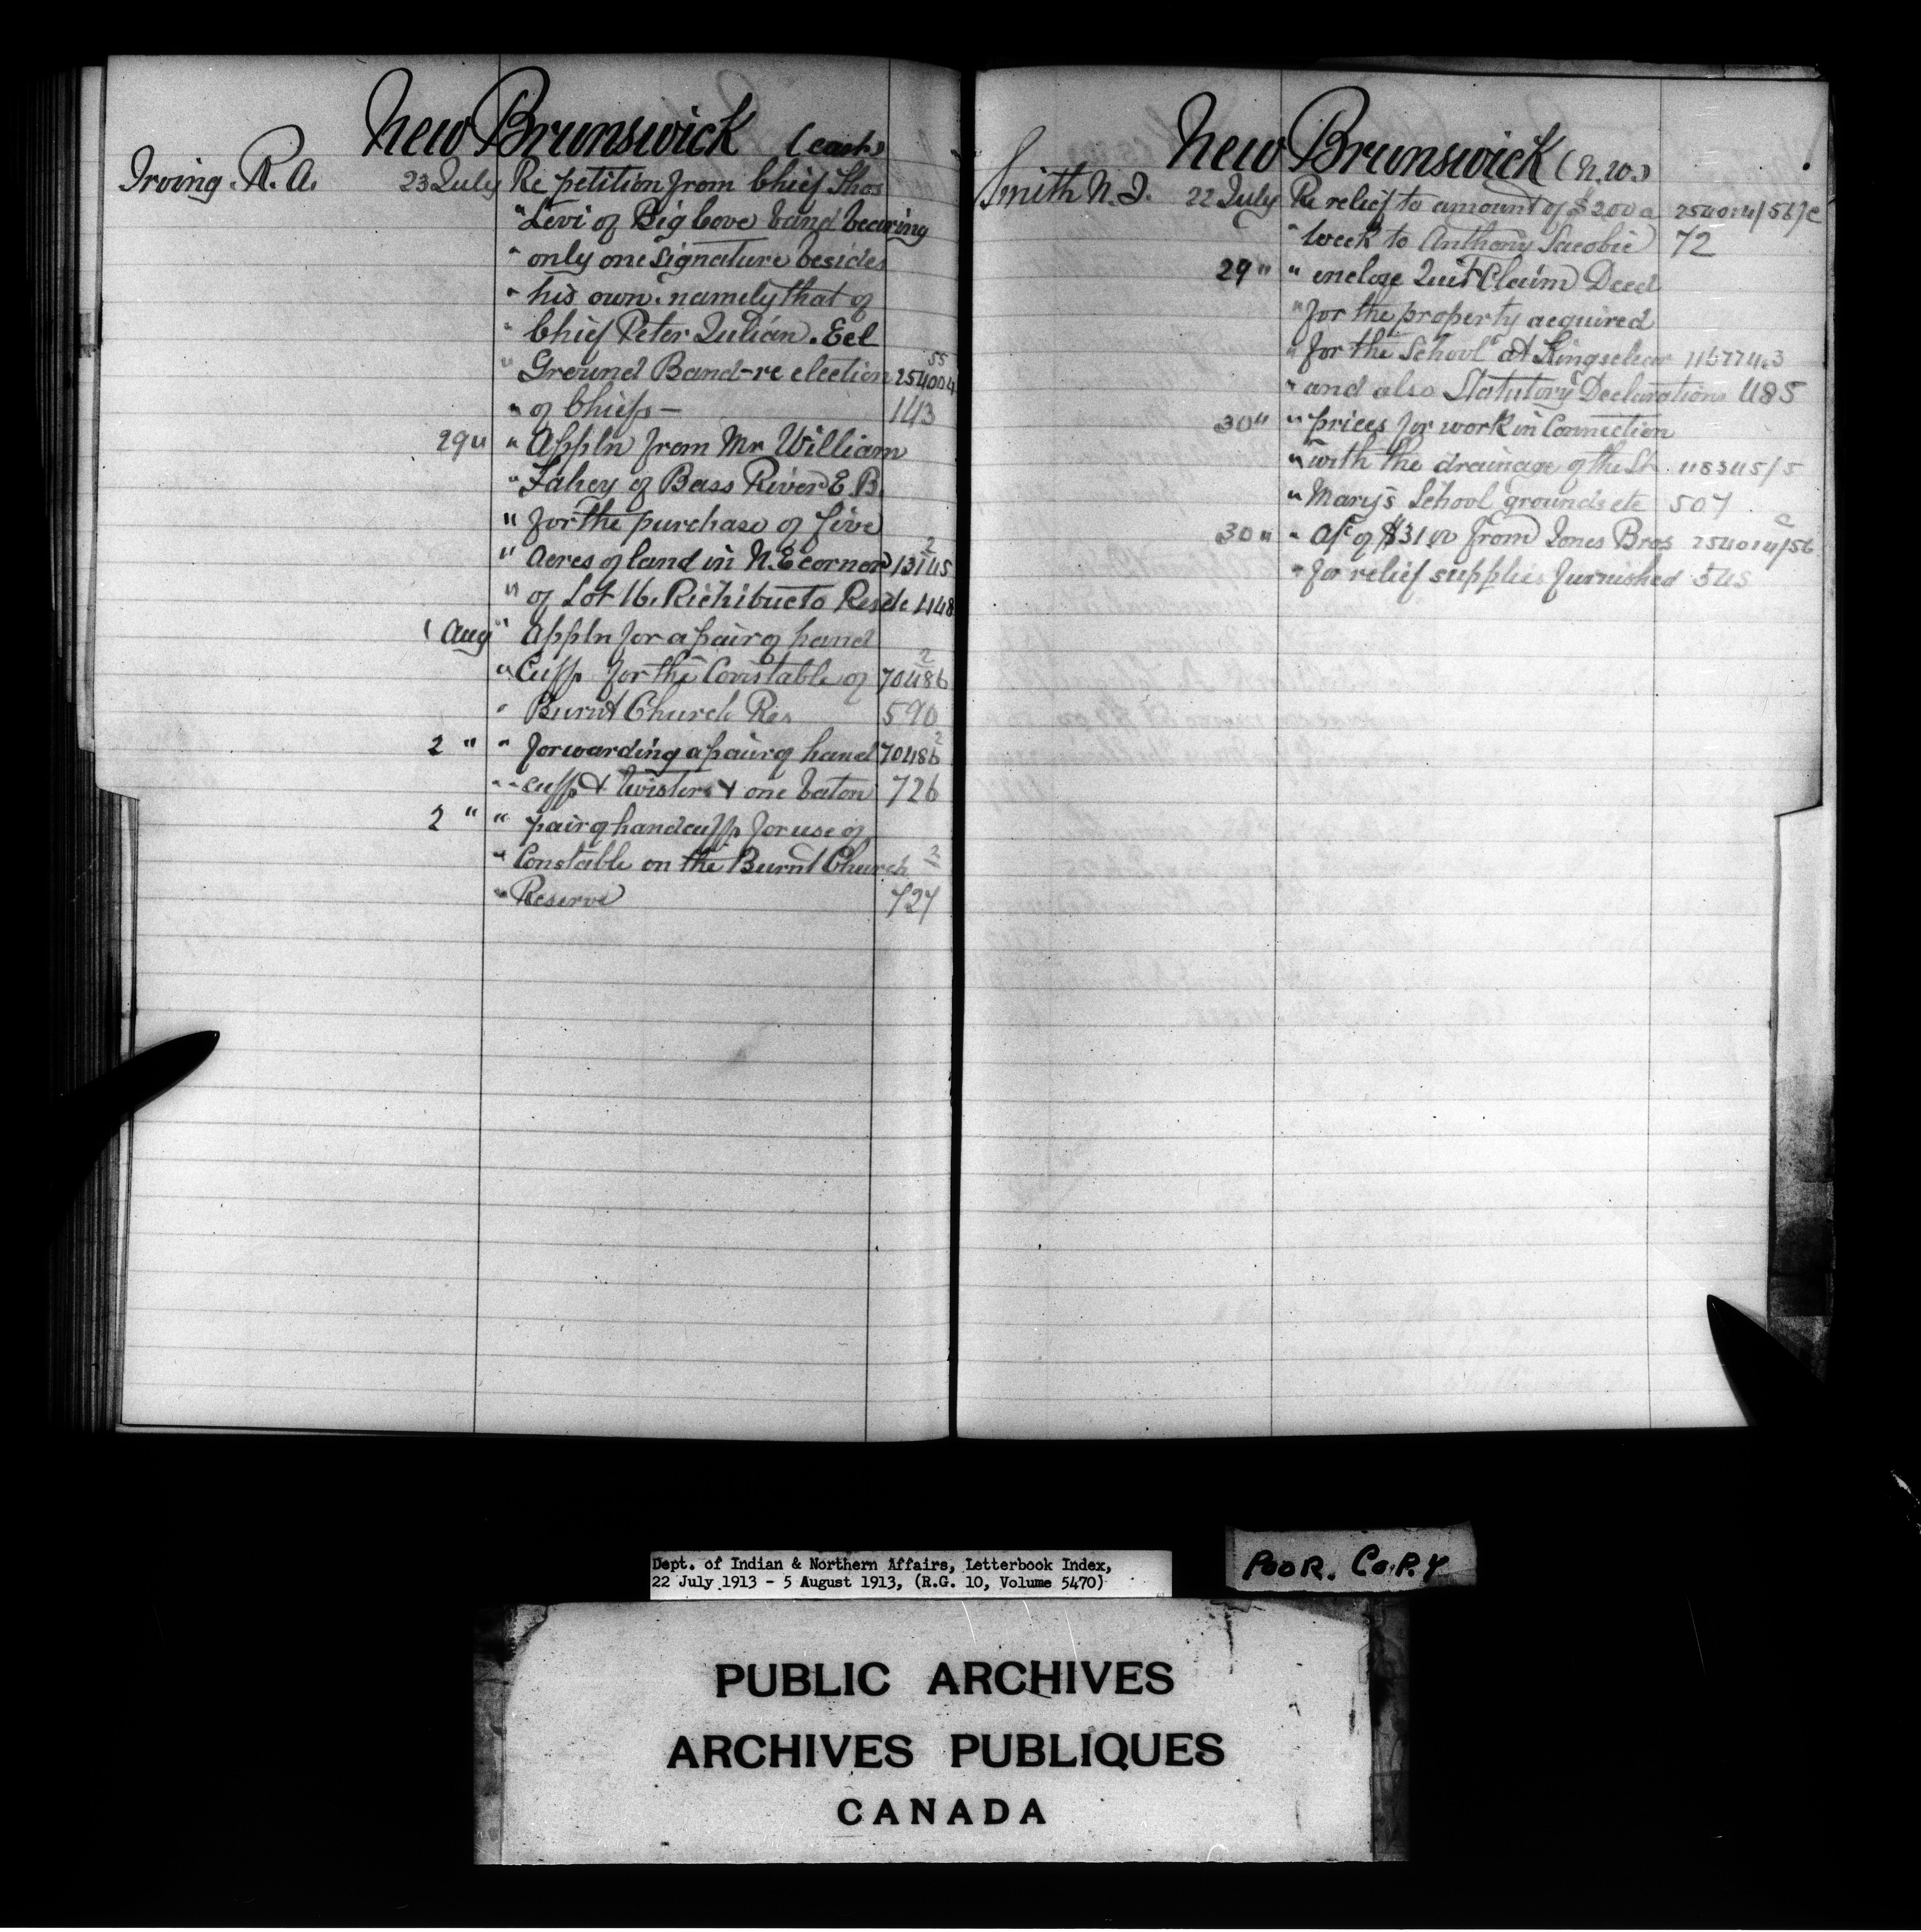 New Brunswick (east)
Irving. R. A. 23 July Re petition from Chief Thos
" Levi of Big Cove band bearing
" only one signature besides
" his own: namely that of
" Chief Peter Julian. Eel
" Ground Band - re election 254004 55
" of Chiefs - 143
29 " " Appln from Mr William
" Fahey of Bass River E. B.
" for the purchase of five
" acres of land in N. E corner 13145 2
" of Lot 16. Richibucto Resde 448
1 Aug " Appln for a pair of hand
" Cuffs for the Constable of 70486 2
" Burnt Church Res 590
2 " " forwarding a pair of hand 70486 2
" " cuffs & twisters & one baton 726
2 " " pair of handcuffs for use of
" Constable on the Burnt Church 2
" Reserve 727
New Brunswick (N.W.)
Smith N. J. 22 July Re relief to amount of $2.00 a 254014/56/C
" Week to Anthony Sacobie 72
29 " " enclose Quit Claim Deed
" for the property acquired
" for the School at Kingsclear 116774.3
" and also Statutory Declarations 485
30 " " prices for work in Connection
" with the drainage of the St. 118345/5
" Mary's School grounds etc 507
30 " " a/c of $31.00 from Jones Bros 254014/56 C
" for relief supplies furnished 545
Dept. of Indian & Northern Affairs, Letterbook Index,
22 July 1913 - 5 August 1913, (R.G. 10, Volume 5470)
POOR. COPY
PUBLIC ARCHIVES
ARCHIVES PUBLIQUES
CANADA